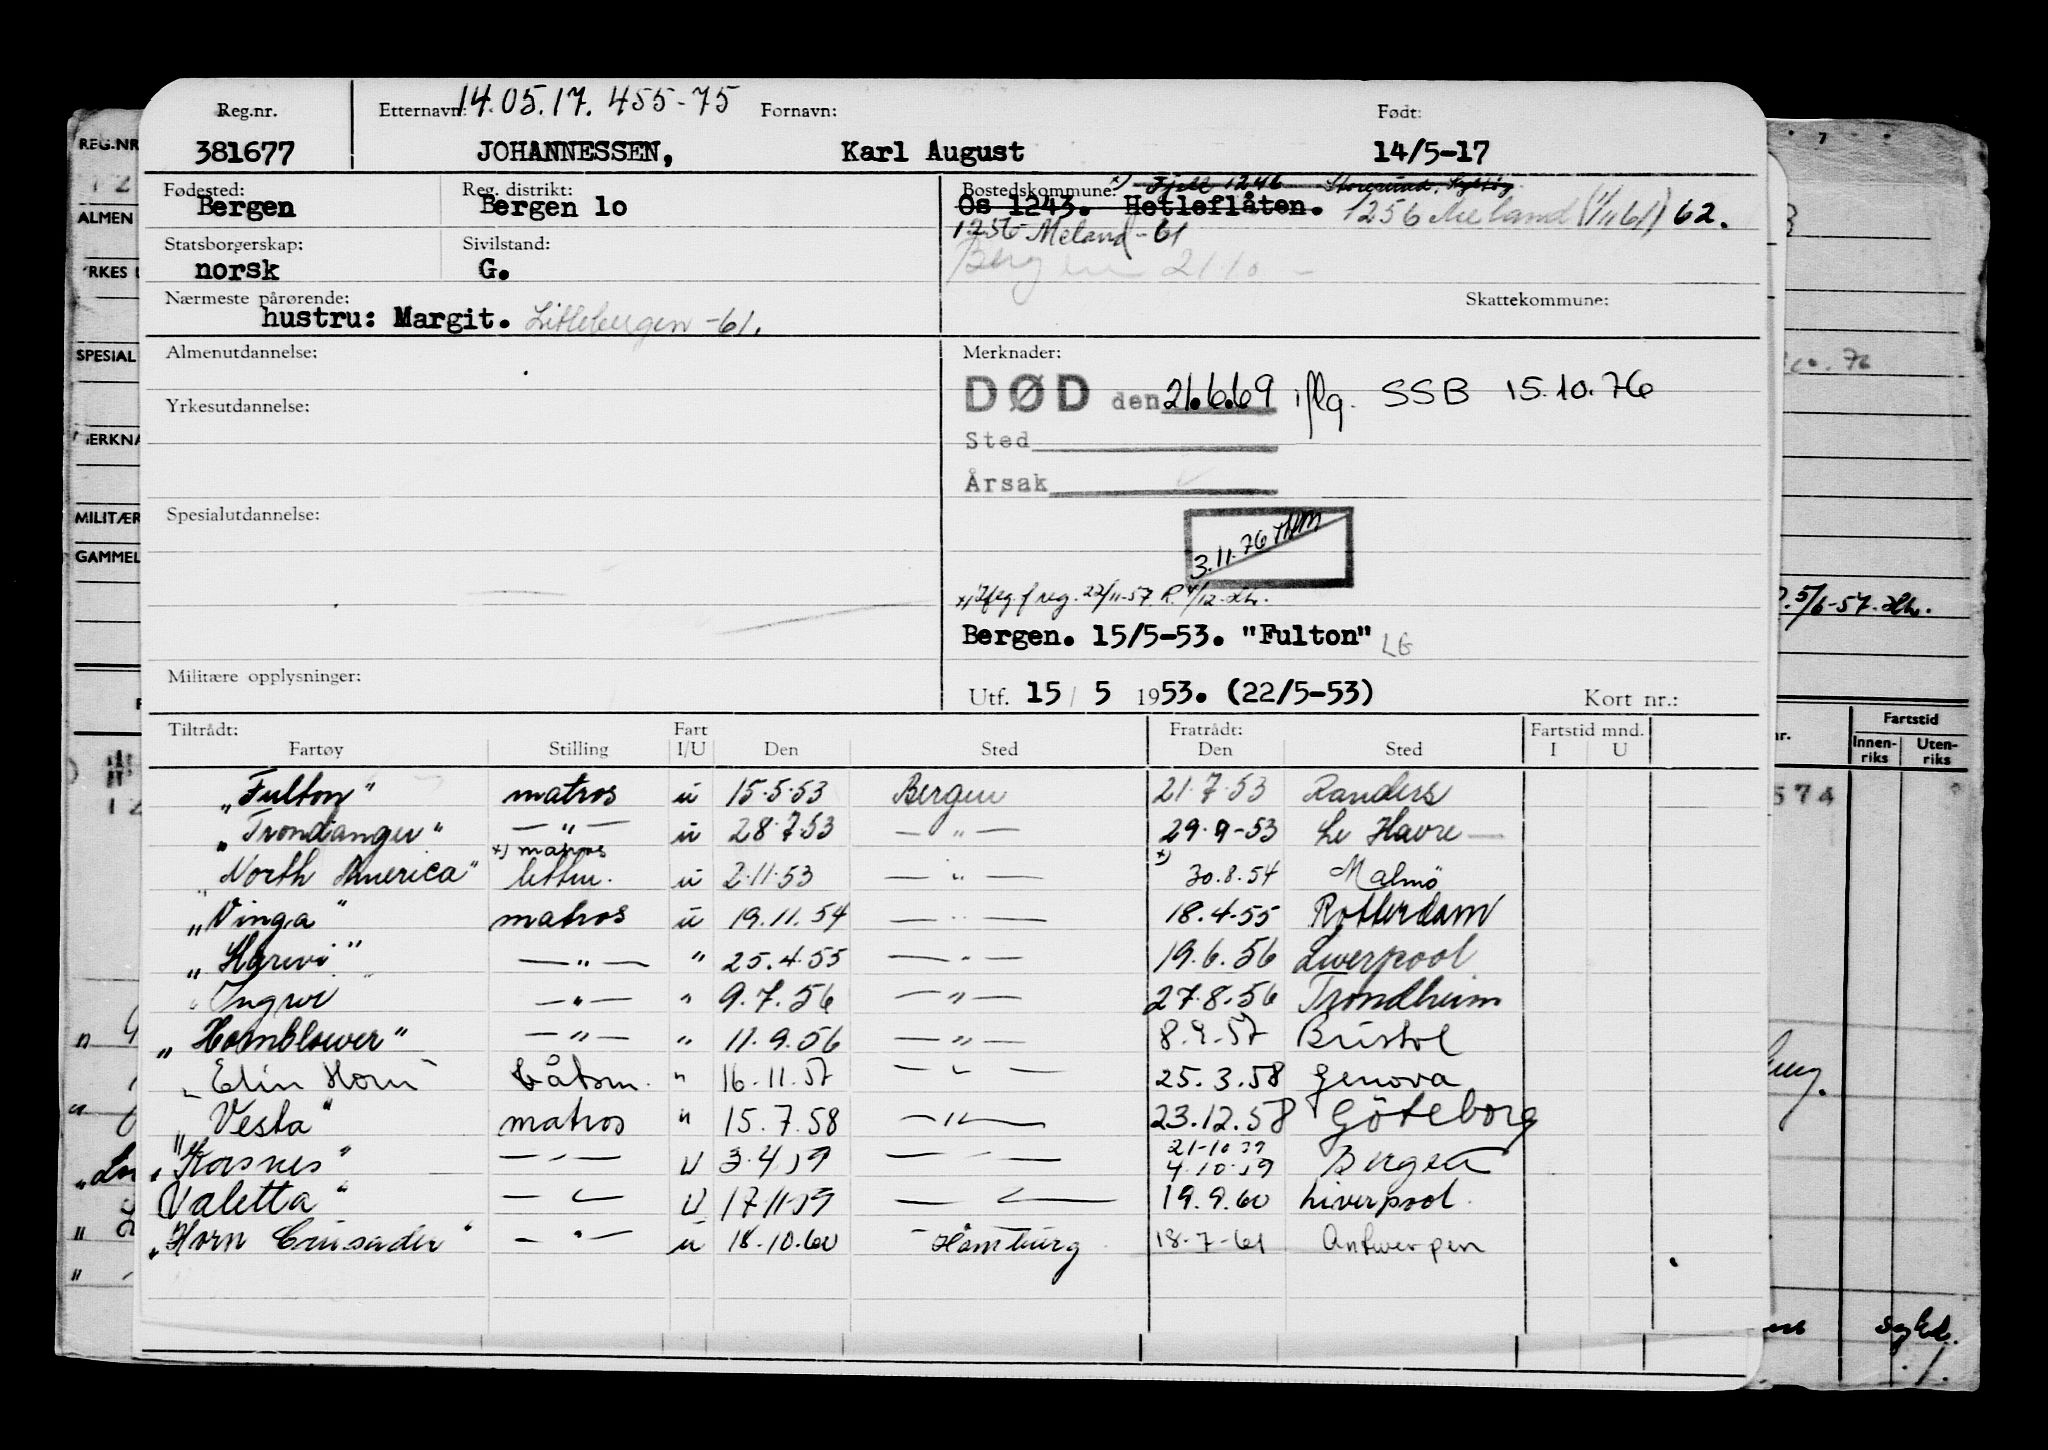 Reg.nr. Etternavn: 14.05.17. 455-75 Fornavn: Født:
381677 JOHANNESSEN, Karl August 14/5-17
Fødested: Reg. distrikt: Bostedskommune: Fjell 1246
Bergen Bergen 10 Os 1243. Hetleflåten. 1256 Meland (1/11 61) 62.
1256 Meland - 61
Statsborgerskap: Sivilstand:
norsk G. Bergen 21.10
Nærmeste pårørende: Skattekommune:
hustru: Margit. Littlebergen -61.
Almenutdannelse: Merknader:
DØD den 21.6.69 iflg. SSB 15.10.76
Yrkesutdannelse:
Sted
Årsak
Spesialutdannelse:
3.11.76
x) Iflg. f reg. 22/11-57. R.
Bergen. 15/5-53. "Fulton" LG
Militære opplysninger:
Utf. 15 / 5 1953. (22/5-53) Kort nr.:
Tiltrådt: Fart Fratrådt: Fartstid mnd.
Fartøy Stilling I/U Den Sted Den Sted I U
„Fulton" matros u 15.5.53 Bergen 21.7.53 Randers
„Trondanger" — " — u 28.7.53 — " — 29.9-53 Le Havre
x) matros x)
„North America" lettm. u 2.11.53 — " — 30.8.54 Malmö
„Vinga" matros u 19.11.54 — " — 18.4-55 Rotterdam
„Harevi" — " — " 25.4.55 — " — 19.6.56 Liverpool
„Ingwi — " — " 9.7.56 — " — 27.8.56 Trondheim
„Hornblower" — " — " 11.9.56 — " — 8.9.57 Bristol
„Elin Horn" båtsm. " 16.11.57 — " — 25.3.58 Genova
„Vesta" matros " 15.7.58 — " — 23.12.58 Göteborg
21-10 59
„Korsnes" — " — U 3.4 59 — " — 4.10.59 Bergen
Valetta" — " — U 17.11.59 — " — 19.9.60 Liverpool
„Horn Crusader" — " — u 18.10.60 Hamburg 18-7-61 Antwerpen
REG.NR
ALMEN
YRKES
SPESIAL
MERKNA
MILITÆR
GAMMEL
5/6-57.
Fartstid
nr. Innenriks Utenriks
574